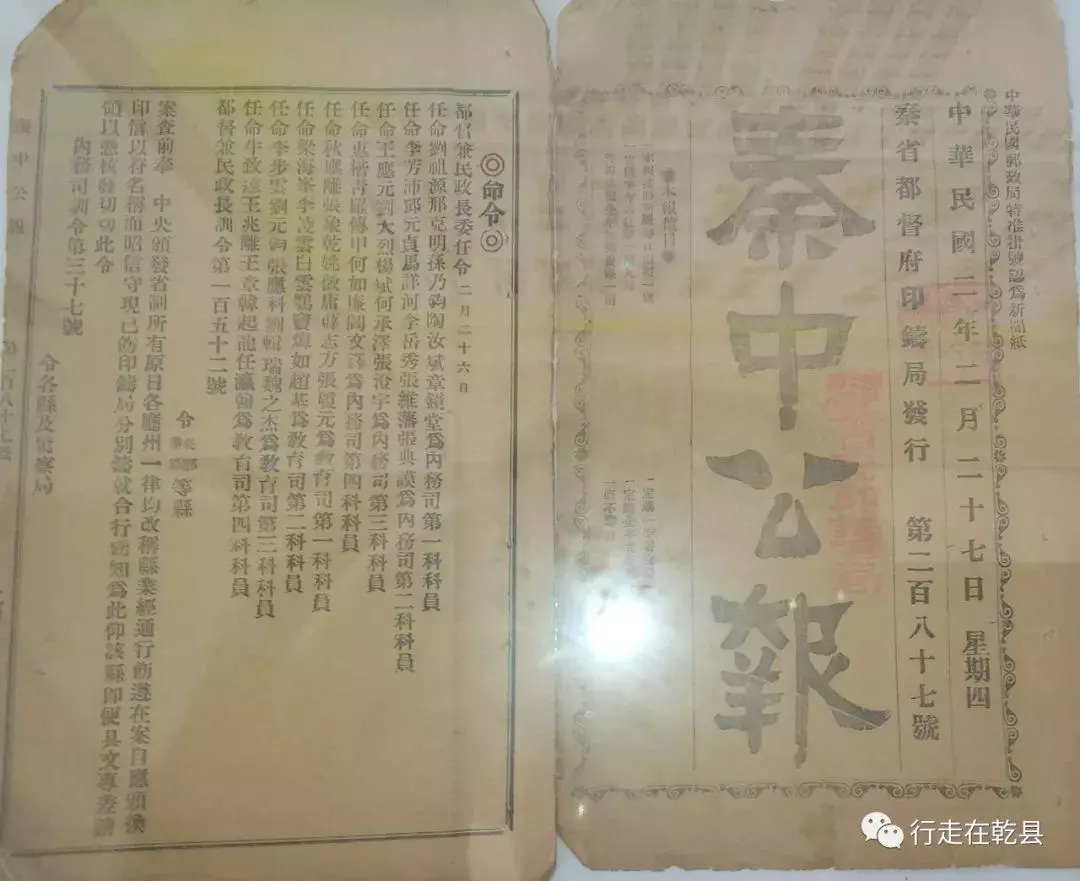 中華民國郵政局特准掛號認為新聞紙
中華民國二年二月二十七日 星期四
秦省都督府印鑄局發行 第二百八十七號
秦中公報
◎命令◎
都督兼民政長委任令 二月二十六日
任命劉祖源邢克明孫乃鈞陶汝斌章鏡堂為內務司第一科科員
任命李芳沛邱元貞馬詳河李岳秀張維藩張典謨為內務司第二科科員
任命王應元劉大烈楊斌何承澤張滄宇為內務司第三科科員
任命惠楷書羅傳甲何如廉閻文鐸為內務司第四科科員
任命秋應離張象乾姚俶唐蔣志方張履元為教育司第一科科員
任命梁海峯李凌雲白雲鶚竇煒如趙基為教育司第二科科員
任命李步雲劉元鈞張應科劉輯瑞魏之杰為教育司第三科科員
任命牛致遠王兆離王章韓起龍任瀛翰為教育司第四科科員
都督兼民政長訓令第一百五十二號
令 等縣
案查前奉 中央頒發省制所有原日各廳州一律均改稱縣業經通行飭遵在案自應頒換
印信以符名稱而昭信守現已飭印鑄局分別鑄就合行飭知為此仰該縣即便具文專差請
領以憑核發切切此令
內務司訓令第三十七號
令各縣及警察局
秦中公報
行走在乾县